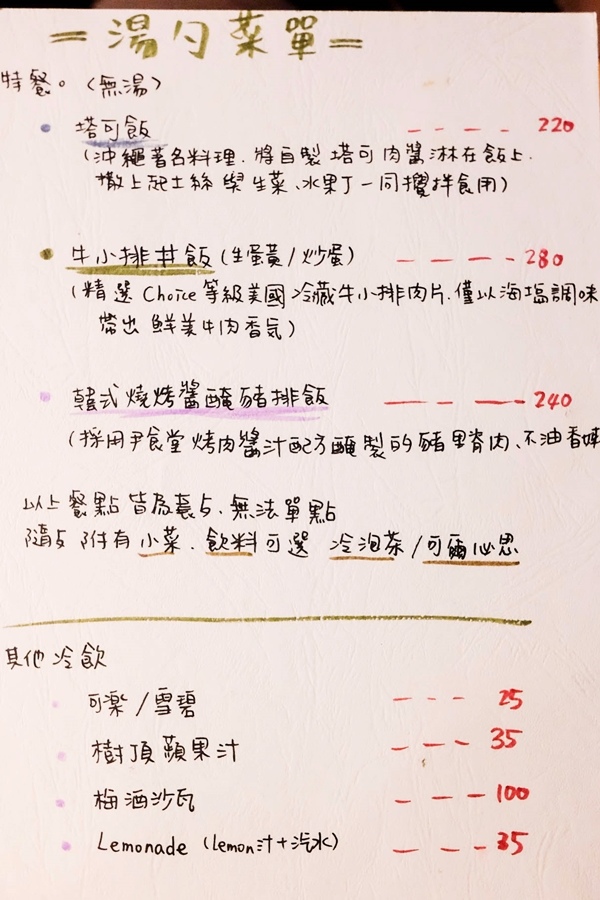 =湯勺菜單=
特餐。(無湯)
塔可飯 ---- 220
(沖繩著名料理.將自製塔可肉醬淋在飯上.
撒上起士絲與生菜、水果丁一同攪拌食用)
牛小排丼飯(生蛋黃/炒蛋) ---- 280
(精選Choice等級美國冷藏牛小排肉片.僅以海塩調味
帶出鮮美牛肉香氣)
韓式燒烤醬醃豬排飯 ---- 240
(採用尹食堂烤肉醬汁配方醃製的豬里脊肉、不油香嫩
以上餐點皆為套歺.無法單點
隨歺附有小菜.飲料可選 冷泡茶/可爾必思
其他冷飲
可樂/雪碧 --- 25
樹頂蘋果汁 --- 35
梅酒沙瓦 --- 100
Lemonade (lemon汁+汽水) --- 35